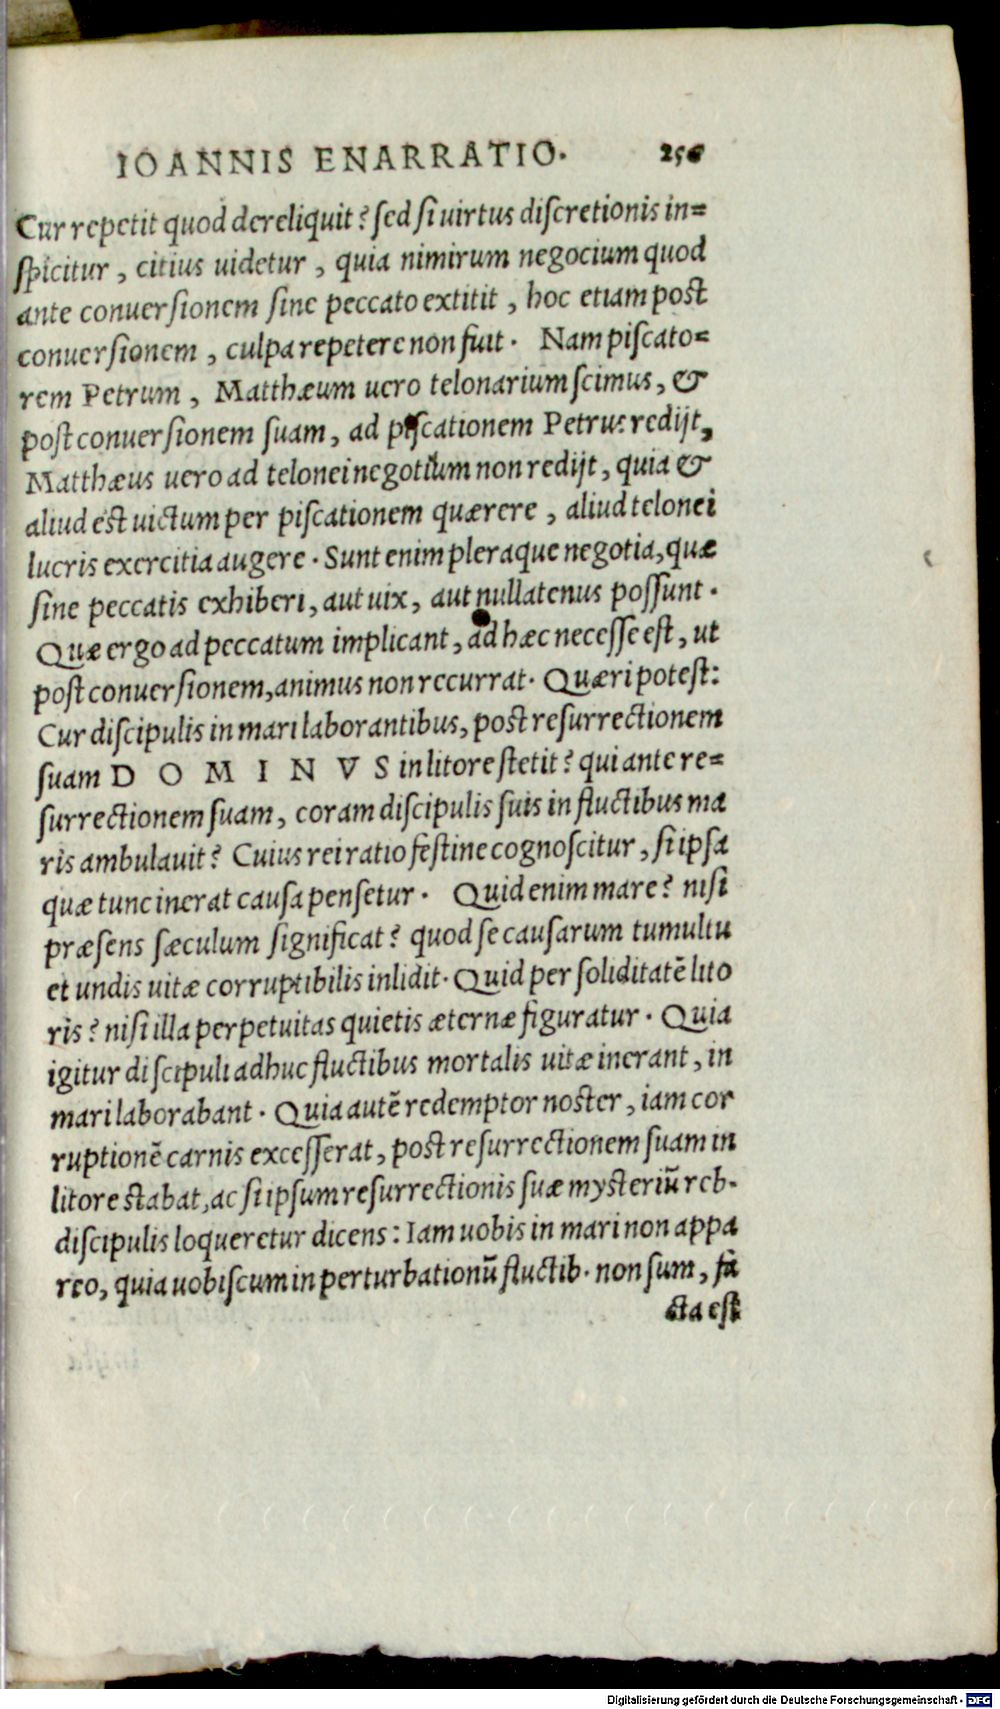 IOANNIS ENARRATIO. 256
Cur repetit quod dereliquit? sed si uirtus discretionis in=
spicitur, citius uidetur, quia nimirum negocium quod
ante conuersionem sine peccato extitit, hoc etiam post
conuersionem, culpa repetere non fuit. Nam piscato=
rem Petrum, Matthæum uero telonarium scimus, &
post conuersionem suam, ad piscationem Petrus redijt,
Matthæus uero ad telonei negotium non redijt, quia &
aliud est uictum per piscationem quærere, aliud telonei
lucris exercitia augere. Sunt enim pleraque negotia, quæ
sine peccatis exhiberi, aut uix, aut nullatenus possunt.
Quæ ergo ad peccatum implicant, ad hæc necesse est, ut
post conuersionem, animus non recurrat. Quæri potest:
Cur discipulis in mari laborantibus, post resurrectionem
suam D O M I N V S in litore stetit? qui ante re=
surrectionem suam, coram discipulis suis in fluctibus ma
ris ambulauit? Cuius rei ratio festine cognoscitur, si ipsa
quæ tunc inerat causa pensetur. Quid enim mare? nisi
præsens sæculum significat? quod se causarum tumultu
et undis uitæ corruptibilis inlidit. Quid per soliditatē lito
ris? nisi illa perpetuitas quietis æternæ figuratur. Quia
igitur discipuli adhuc fluctibus mortalis uitæ inerant, in
mari laborabant. Quia autē redemptor noster, iam cor
ruptionē carnis excesserat, post resurrectionem suam in
litore stabat, ac si ipsum resurrectionis suæ mysteriū reb.
discipulis loqueretur dicens: Iam uobis in mari non appa
reo, quia uobiscum in perturbationū fluctib. non sum, fa
cta est
Digitalisierung gefördert durch die Deutsche Forschungsgemeinschaft - DFG